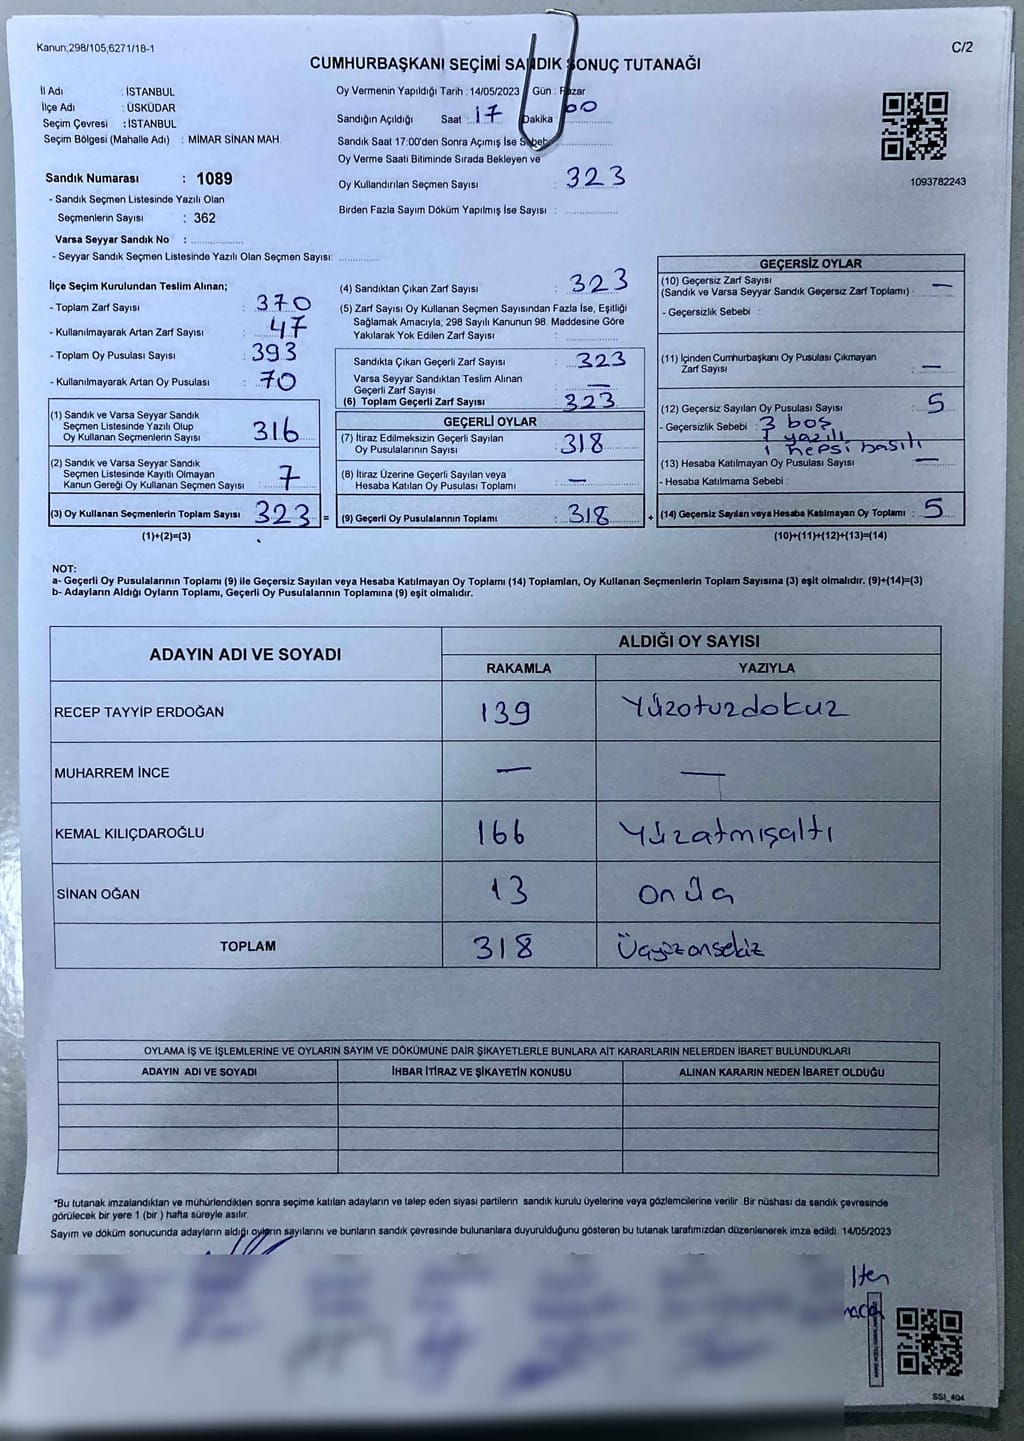 Kanun,298/105,6271/18-1
C/2
CUMHURBAŞKANI SEÇİMİ SANDIK SONUÇ TUTANAĞI
İl Adı : İSTANBUL
İlçe Adı : ÜSKÜDAR
Seçim Çevresi : İSTANBUL
Seçim Bölgesi (Mahalle Adı) : MİMAR SİNAN MAH.
Sandık Numarası : 1089
- Sandık Seçmen Listesinde Yazılı Olan
Seçmenlerin Sayısı : 362
Varsa Seyyar Sandık No :
- Seyyar Sandık Seçmen Listesinde Yazılı Olan Seçmen Sayısı:
Oy Vermenin Yapıldığı Tarih : 14/05/2023 Gün : Pazar
Sandığın Açıldığı Saat : 17 Dakika 00
Sandık Saat 17:00'den Sonra Açımış İse Sebebi
Oy Verme Saati Bitiminde Sırada Bekleyen ve
Oy Kullandırılan Seçmen Sayısı : 323
Birden Fazla Sayım Döküm Yapılmış İse Sayısı :
1093782243
İlçe Seçim Kurulundan Teslim Alınan;
- Toplam Zarf Sayısı : 370
- Kullanılmayarak Artan Zarf Sayısı : 47
- Toplam Oy Pusulası Sayısı : 393
- Kullanılmayarak Artan Oy Pusulası : 70
(1) Sandık ve Varsa Seyyar Sandık
Seçmen Listesinde Yazılı Olup
Oy Kullanan Seçmenlerin Sayısı : 316
(2) Sandık ve Varsa Seyyar Sandık
Seçmen Listesinde Kayıtlı Olmayan
Kanun Gereği Oy Kullanan Seçmen Sayısı : 7
(3) Oy Kullanan Seçmenlerin Toplam Sayısı : 323 =
(1)+(2)=(3)
(4) Sandıktan Çıkan Zarf Sayısı : 323
(5) Zarf Sayısı Oy Kullanan Seçmen Sayısından Fazla İse, Eşitliği
Sağlamak Amacıyla, 298 Sayılı Kanunun 98. Maddesine Göre
Yakılarak Yok Edilen Zarf Sayısı :
Sandıkta Çıkan Geçerli Zarf Sayısı : 323
Varsa Seyyar Sandıktan Teslim Alınan
Geçerli Zarf Sayısı : —
(6) Toplam Geçerli Zarf Sayısı : 323
GEÇERLİ OYLAR
(7) İtiraz Edilmeksizin Geçerli Sayılan
Oy Pusulalarının Sayısı : 318
(8) İtiraz Üzerine Geçerli Sayılan veya
Hesaba Katılan Oy Pusulası Toplamı : —
(9) Geçerli Oy Pusulalarının Toplamı : 318 +
GEÇERSİZ OYLAR
(10) Geçersiz Zarf Sayısı
(Sandık ve Varsa Seyyar Sandık Geçersiz Zarf Toplamı) : —
- Geçersizlik Sebebi :
(11) İçinden Cumhurbaşkanı Oy Pusulası Çıkmayan
Zarf Sayısı : —
(12) Geçersiz Sayılan Oy Pusulası Sayısı : 5
- Geçersizlik Sebebi : 3 boş
1 yazılı
1 hepsi basılı
(13) Hesaba Katılmayan Oy Pusulası Sayısı : —
- Hesaba Katılmama Sebebi :
(14) Geçersiz Sayılan veya Hesaba Katılmayan Oy Toplamı : 5
(10)+(11)+(12)+(13)=(14)
NOT:
a- Geçerli Oy Pusulalarının Toplamı (9) ile Geçersiz Sayılan veya Hesaba Katılmayan Oy Toplamı (14) Toplamları, Oy Kullanan Seçmenlerin Toplam Sayısına (3) eşit olmalıdır. (9)+(14)=(3)
b- Adayların Aldığı Oyların Toplamı, Geçerli Oy Pusulalarının Toplamına (9) eşit olmalıdır.
ADAYIN ADI VE SOYADI ALDIĞI OY SAYISI
RAKAMLA YAZIYLA
RECEP TAYYİP ERDOĞAN 139 Yüzotuzdokuz
MUHARREM İNCE — —
KEMAL KILIÇDAROĞLU 166 Yüzatmışaltı
SİNAN OĞAN 13 onüç
TOPLAM 318 Üçyüzonsekiz
OYLAMA İŞ VE İŞLEMLERİNE VE OYLARIN SAYIM VE DÖKÜMÜNE DAİR ŞİKAYETLERLE BUNLARA AİT KARARLARIN NELERDEN İBARET BULUNDUKLARI
ADAYIN ADI VE SOYADI İHBAR İTİRAZ VE ŞİKAYETİN KONUSU ALINAN KARARIN NEDEN İBARET OLDUĞU
*Bu tutanak imzalandıktan ve mühürlendikten sonra seçime katılan adayların ve talep eden siyasi partilerin sandık kurulu üyelerine veya gözlemcilerine verilir. Bir nüshası da sandık çevresinde
görülecek bir yere 1 (bir ) hafta süreyle asılır.
Sayım ve döküm sonucunda adayların aldığı oyların sayılarını ve bunların sandık çevresinde bulunanlara duyurulduğunu gösteren bu tutanak tarafımızdan düzenlenerek imza edildi. 14/05/2023
SSI_404